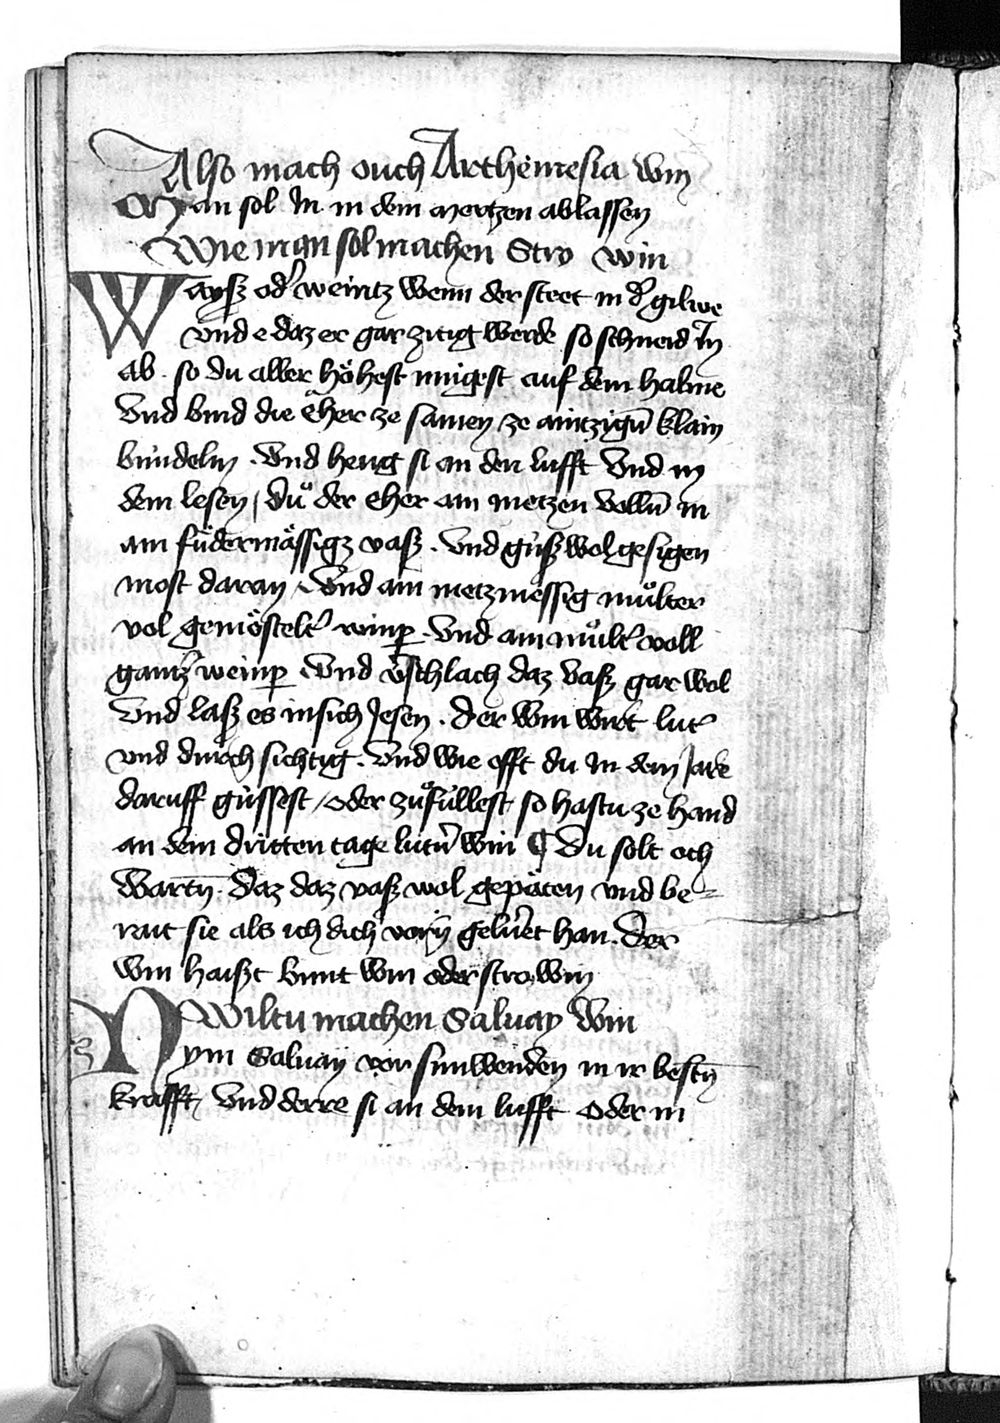 Also mach ouch Arthemesia win
Man sol in in dem mertzen ablassen
Wie man sol machen Stro win
Wayß od' weintz wenn der steet in d' gilwe
vnd e daz er gar zitig werde so schneid in
ab . so du aller höhest mügest auf dem halme
Vnd bind die eher ze samen ze aintzigen̄ klain
bündeln . Vnd heng si an den lufft Vnd in
dem lesen / du̇ der eher ain metzen vollen̄ in
ain füdermässigz vaß . Vnd güß wol gesigen
most daran / Vnd ain metzmessig mu̇lter
vol gemöstelt' winp̱ . Vnd ain mu̇lt' voll
gantz' weinp̱ . Vnd v'schlach daz vaß gar wol
Vnd laß es in sich jesen . der win wirt lut'
vnd durch sichtig . Vnd wie offt du in dem jare
daruff güssest / oder zu̇füllest so hastu ze hand
an dem dritten tage lutn̄ win ¶ Du solt och
Wartn̄ . Daz daz vaß wol gepäten vnd be=
rait sie als ich dich vorn gelert han . der
win haißt bunt win oder stro win
Wiltu machen Saluay Win
Nym Saluay vor sunwenden in ir bestn̄
krafft Vnd derre si an dem lufft oder in